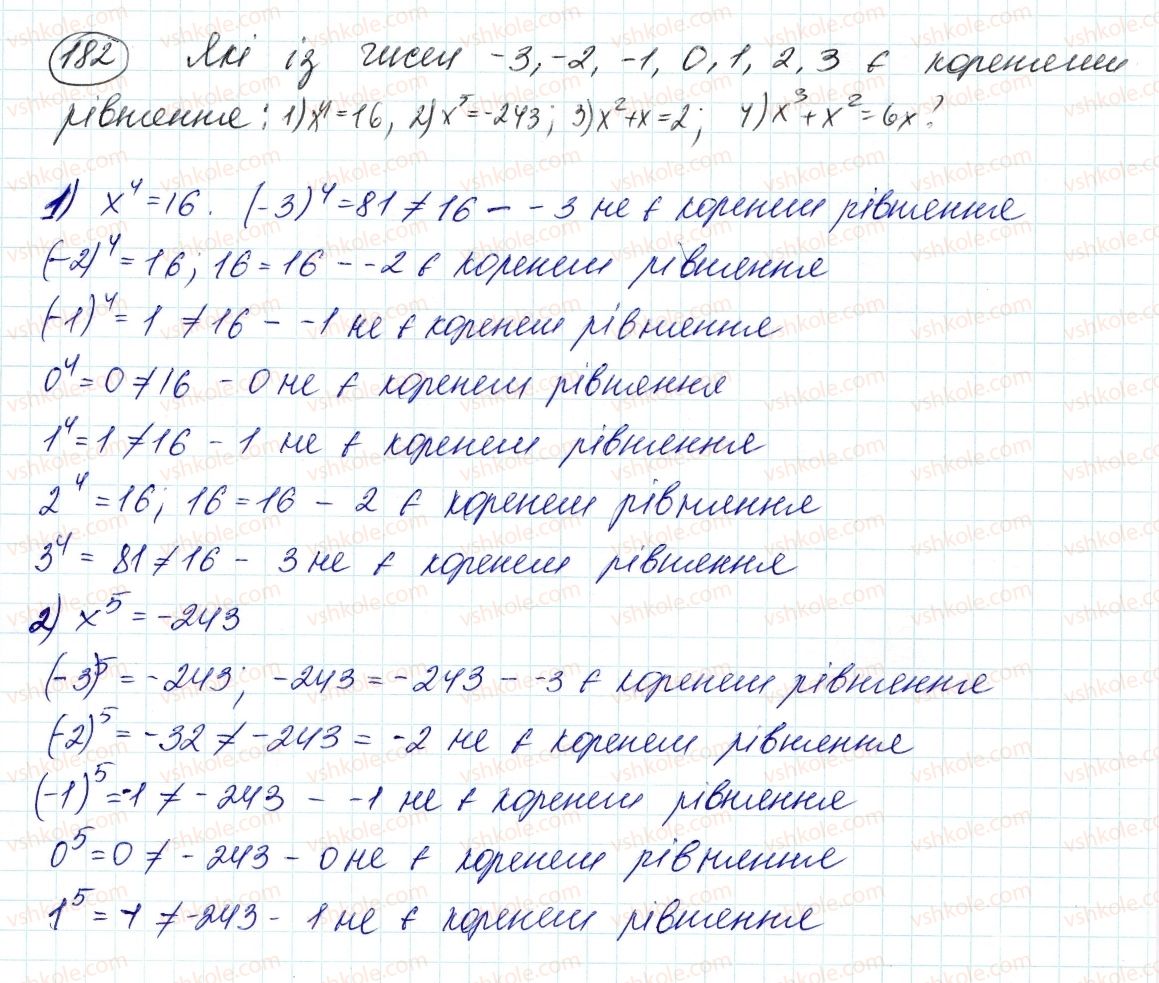 182 Які із чисел -3, -2, -1, 0, 1, 2, 3 є коренями
рівняння: 1) x⁴=16, 2) x⁵=-243; 3) x²+x=2; 4) x³+x²=6x?
1) x⁴=16. (-3)⁴=81≠16 - -3 не є коренем рівняння
(-2)⁴=16; 16=16 - -2 є коренем рівняння
(-1)⁴=1≠16 - -1 не є коренем рівняння
0⁴=0≠16 - 0 не є коренем рівняння
1⁴=1≠16 - 1 не є коренем рівняння
2⁴=16; 16=16 - 2 є коренем рівняння
3⁴=81≠16 - 3 не є коренем рівняння
2) x⁵=-243
(-3)⁵=-243; -243=-243 - -3 є коренем рівняння
(-2)⁵=-32≠-243 = -2 не є коренем рівняння
(-1)⁵=-1≠-243 - -1 не є коренем рівняння
0⁵=0≠-243 - 0 не є коренем рівняння
1⁵=1≠-243 - 1 не є коренем рівняння
vshkole.com